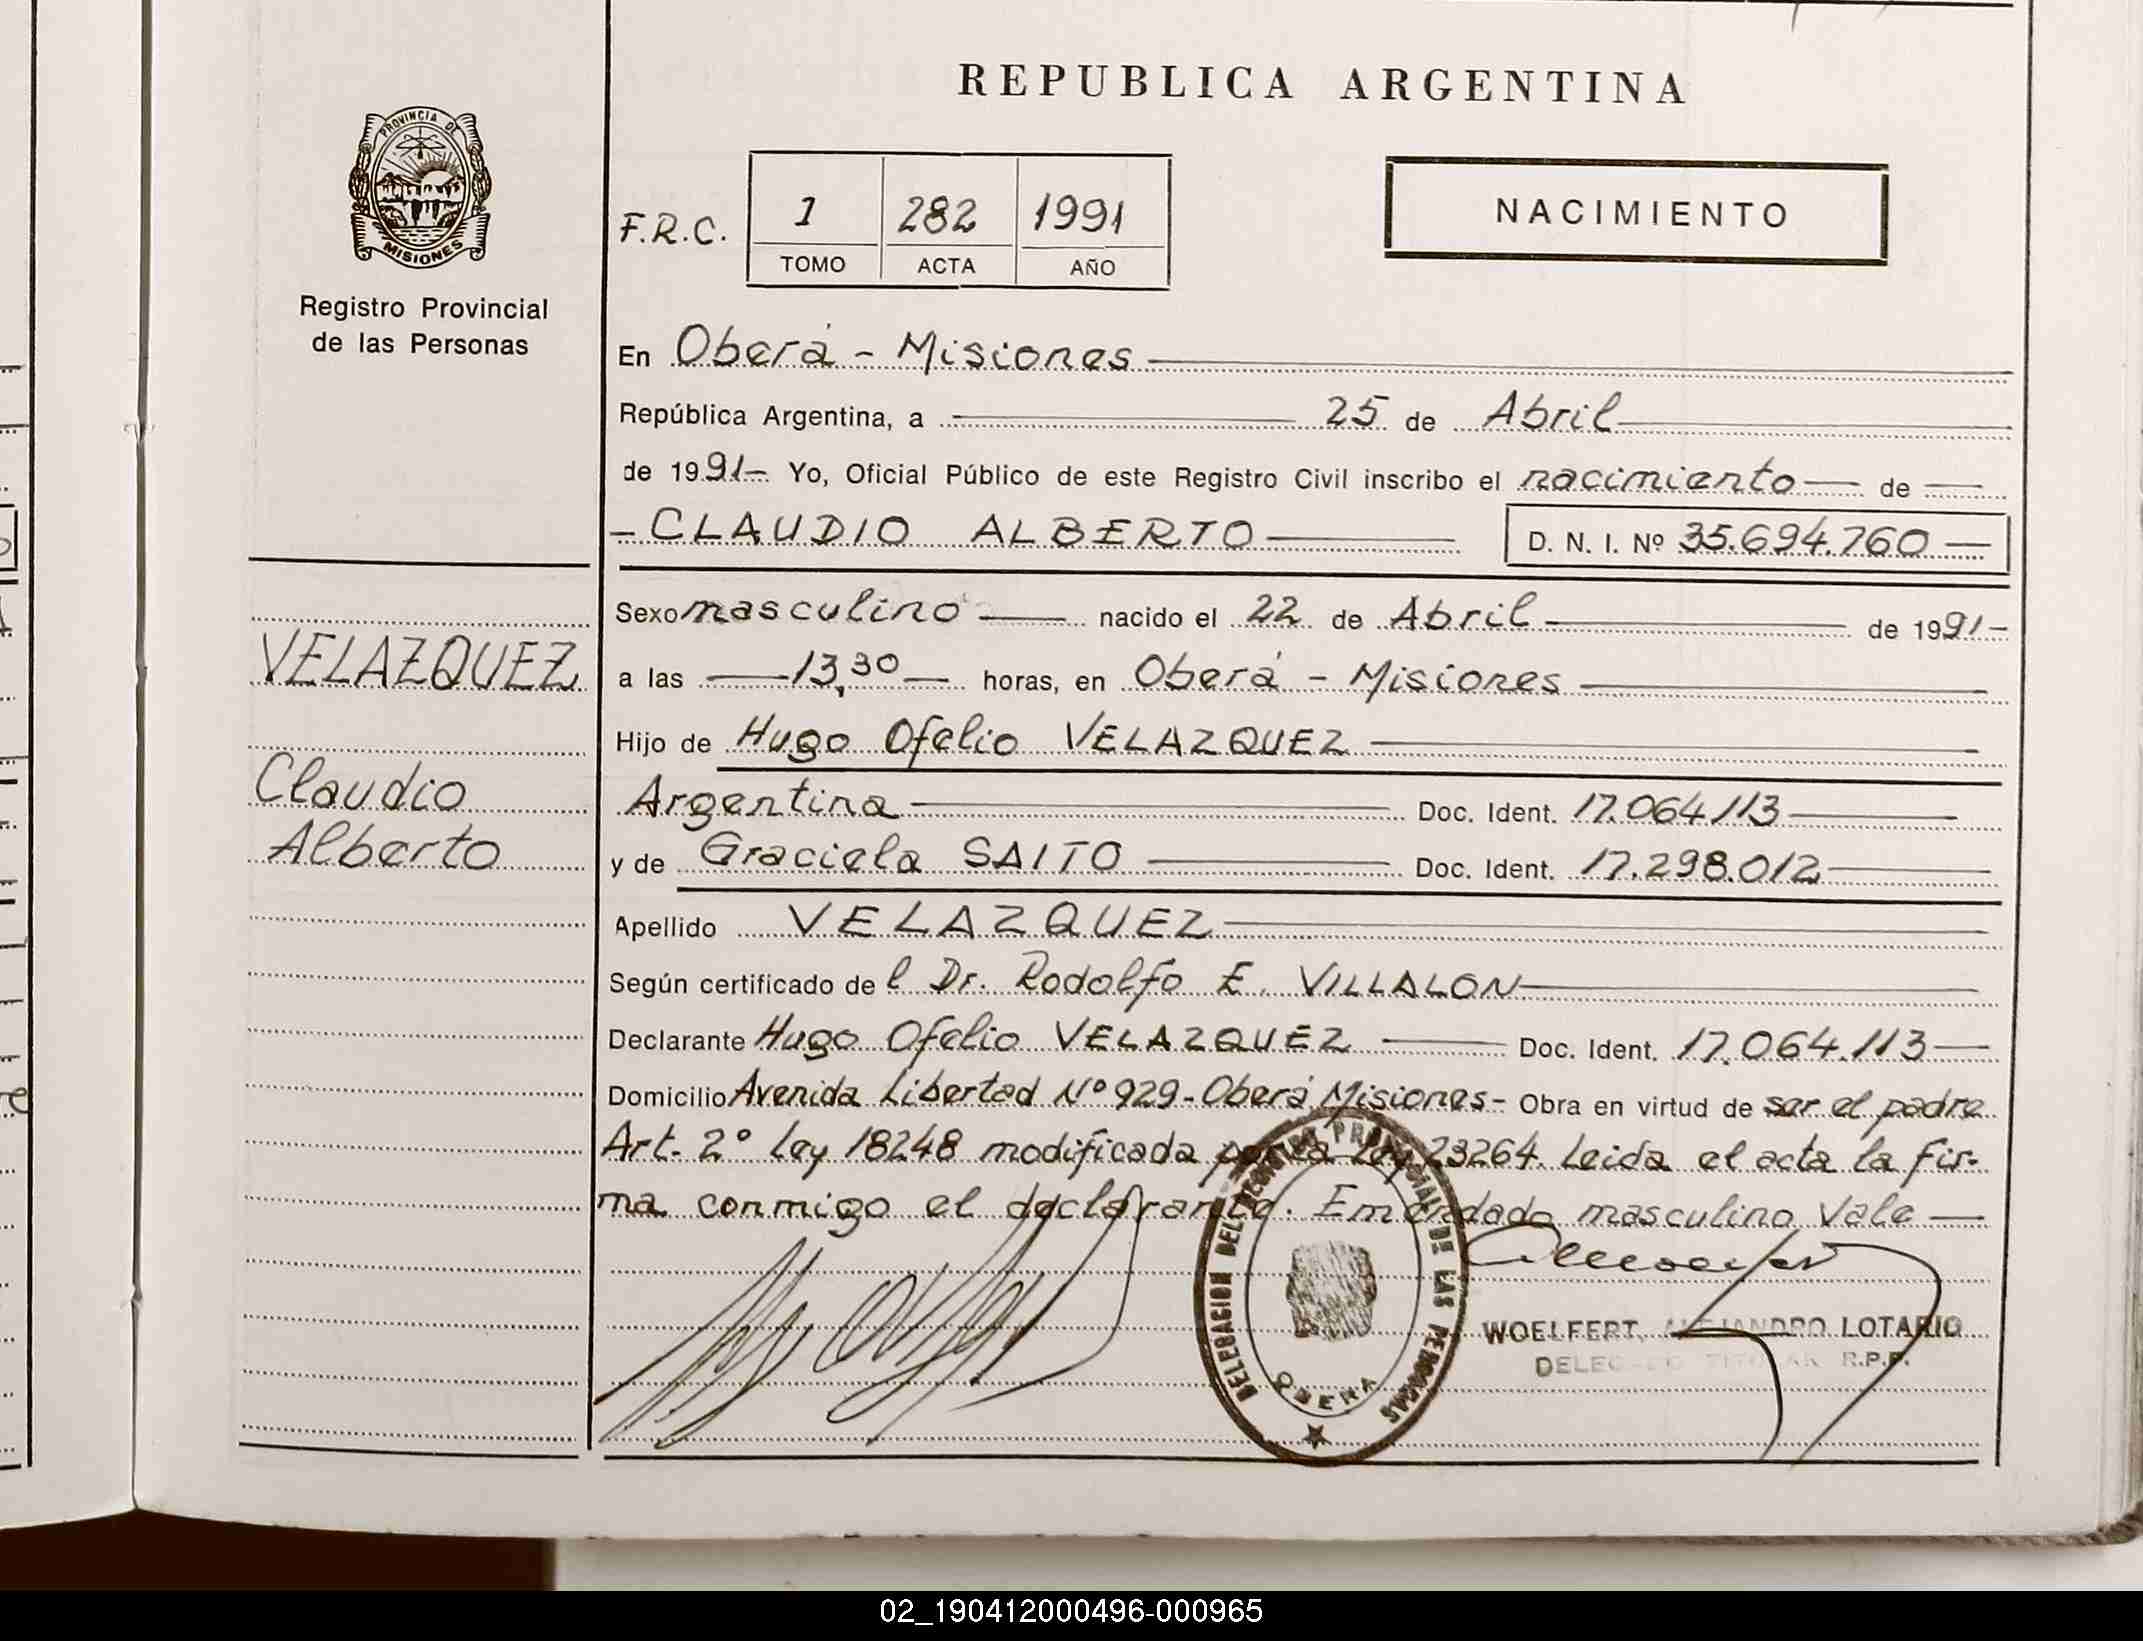 REPUBLICA ARGENTINA
PROVINCIA DE
MISIONES
Registro Provincial
de las Personas
F.R.C. 1 282 1991
TOMO ACTA AÑO
NACIMIENTO
En Oberá - Misiones
República Argentina, a 25 de Abril
de 1991- Yo, Oficial Público de este Registro Civil inscribo el nacimiento de
- CLAUDIO ALBERTO D. N. I. Nº 35.694.760
Sexo masculino nacido el 22 de Abril de 1991-
a las 13,30 horas, en Oberá - Misiones
Hijo de Hugo Ofelio VELAZQUEZ
Argentina Doc. Ident. 17.064.113
y de Graciela SAITO Doc. Ident. 17.298.012
Apellido VELAZQUEZ
Según certificado de l Dr. Rodolfo E. VILLALON
Declarante Hugo Ofelio VELAZQUEZ Doc. Ident. 17.064.113
Domicilio Avenida Libertad Nº 929 - Oberá Misiones - Obra en virtud de ser el padre
Art. 2º Ley 18248 modificada por la Ley 23264. Leida el acta la fir-
ma conmigo el declarante. Emendado masculino Vale
VELAZQUEZ
Claudio
Alberto
DELEGACION DEL REGISTRO PROVINCIAL DE LAS PERSONAS
OBERA
WOELFERT, ALEJANDRO LOTARIO
DELEGADO TITULAR R.P.P.
02_190412000496-000965